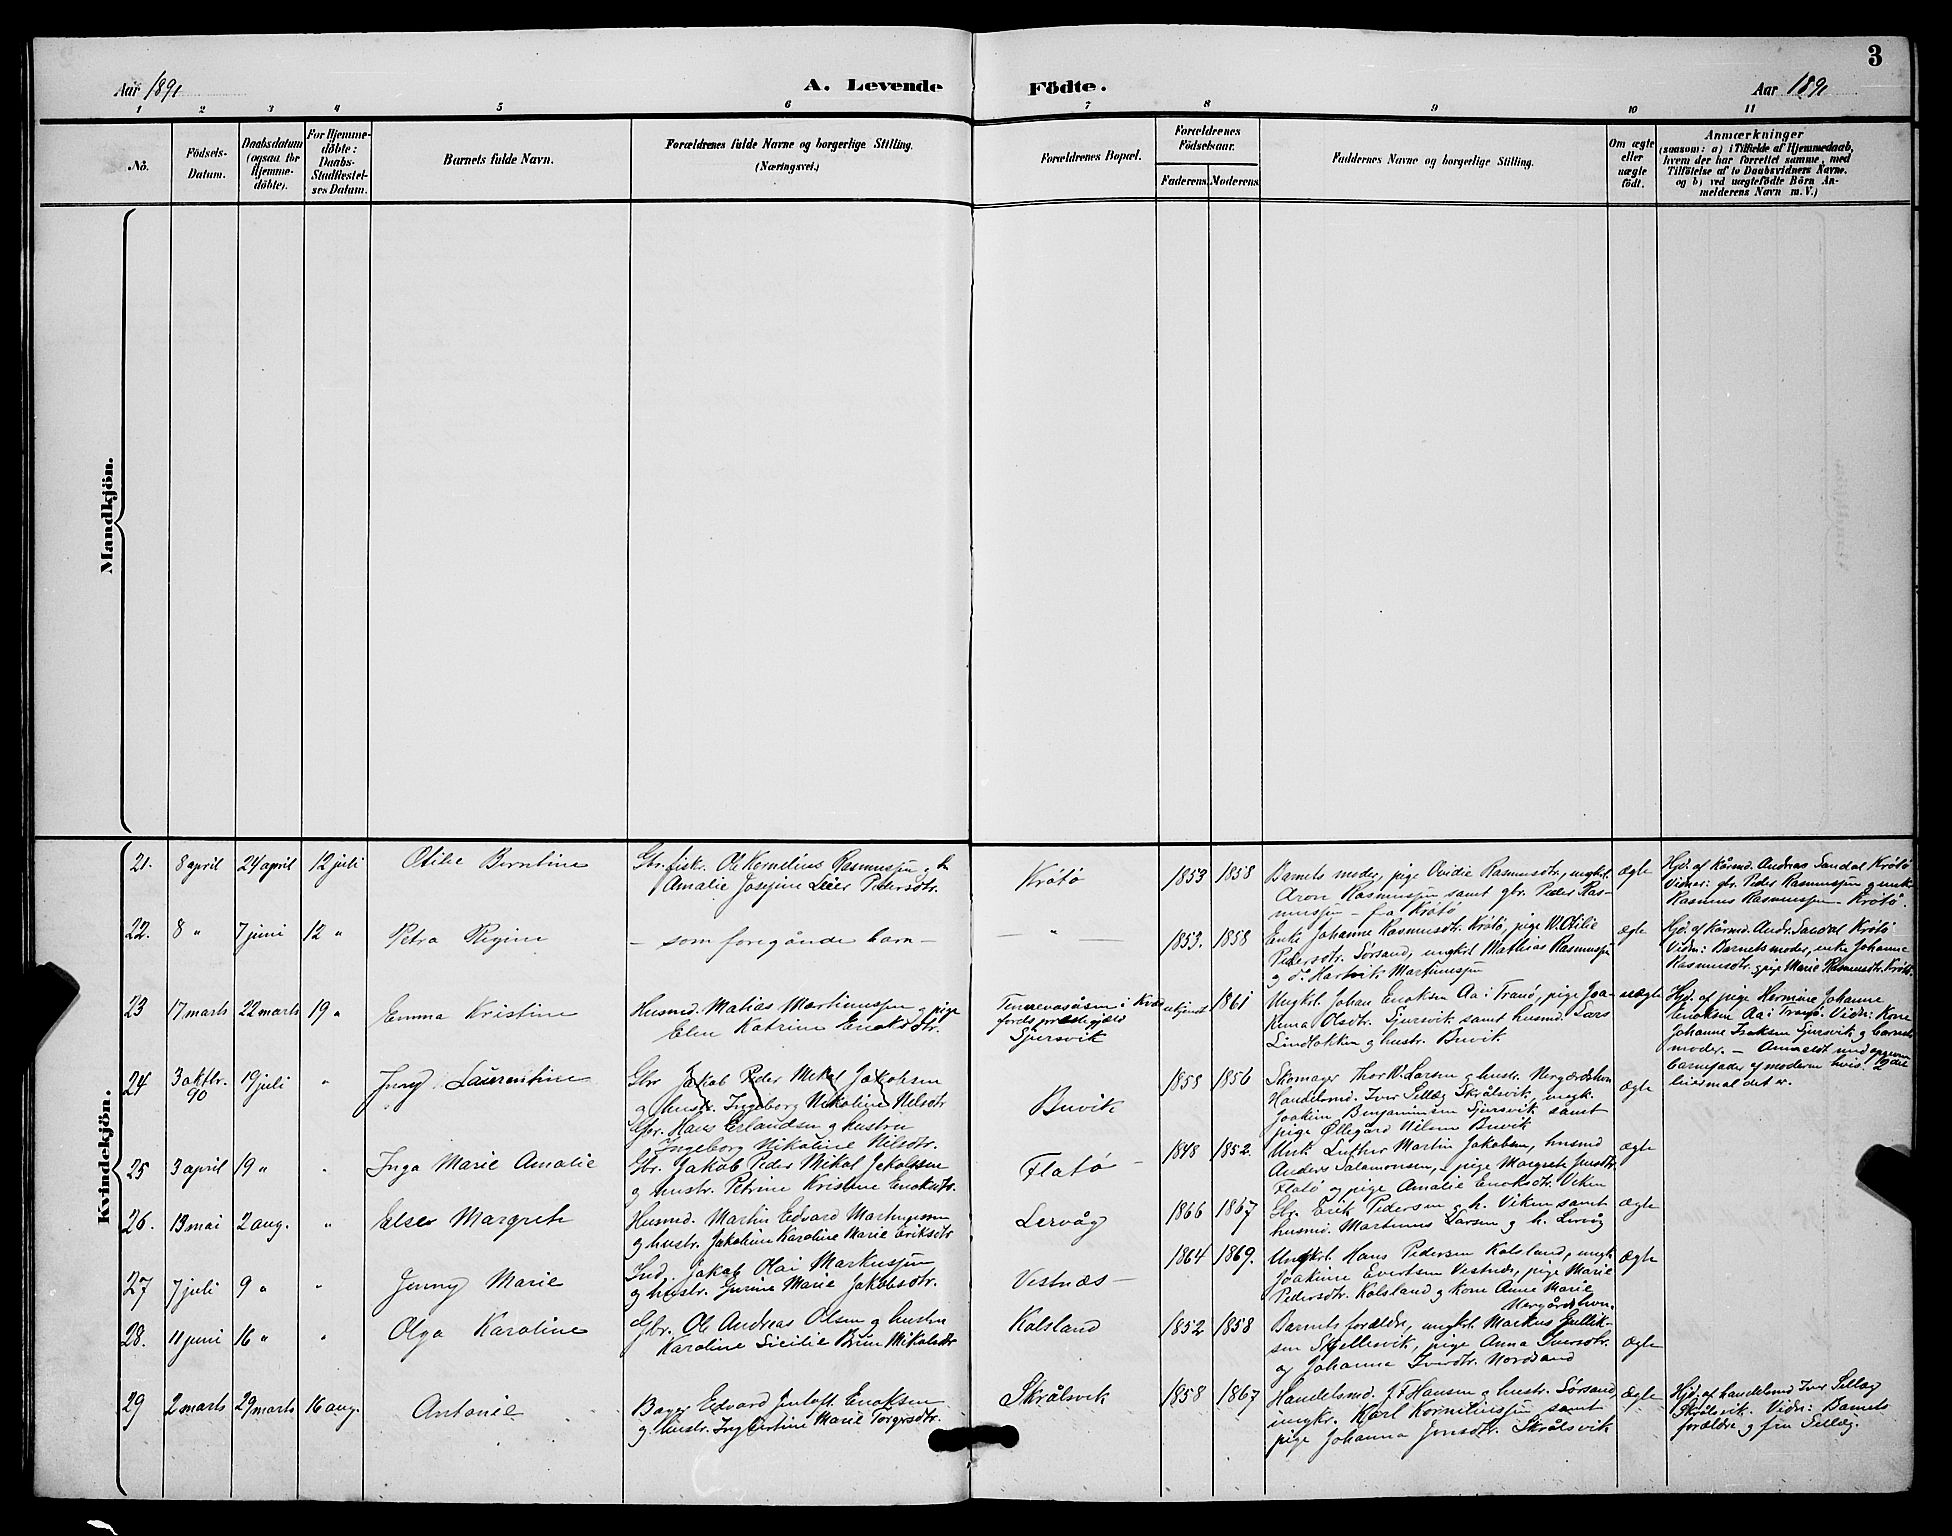 3
Aar 1891
A. Levende
Födte.
Aar 1891
1 2 3 4 5 6 7 8 9 10 11
No.
Födsels-
Datum.
Daabsdatum
(ogsaa for
Hjemme-
döbte).
For Hjemme-
döbte:
Daabs-
Stadfæstel-
ses Datum.
Barnets fulde Navn.
Forældrenes fulde Navne og borgerlige Stilling.
(Næringsvei.)
Forældrenes Bopæl.
Forældrenes
Födselsaar.
Faderens. Moderens.
Faddernes Navne og borgerlige Stilling.
Om ægte
eller
uægte
födt.
Anmærkninger
(saasom: a) i Tilfælde af Hjemmedaab,
hvem der har forrettet samme, med
Tilföielse af to Daabsvidners Navne.
og b) ved uægtefödte Börn An-
melderens Navn m. V.)
Mandkjön.
Kvindekjön.
21. 8 april 24 april 12 juli Otilie Berntine
Gbr. fisk. Ole Kornelius Rasmussen og h
Amalie Josefine Pedersdtr.
Krötö
1853 1858
Barnets moder, pige Ovidie Rasmusdtr., ungkrl.
Aron Rasmussen samt gbr. Peder Ras-
mussen – fra Krötö
ægte
Hjd. af kårmd. Andreas Sandal Krötö
Vidner: gbr. Peder Rasmussen og
Rasmus Rasmussen Krötö.
22. 8 " 7 juni 12 " Petra Regine
– som foregående barn –
– " –
1853. 1858
Enke Johanne Rasmusdtr. Krötö, pige
Pedersdtr. Sörsand, ungkrl. Mathias Rasmussen
og do. Hartvik Martinussen
ægte
Hjd. af kårmd. Andr. Sandal Krötö
Vidn: Barnets moder, enke Johanne
Rasmusdtr. og pige Marie Rasmusdtr. Krötö
23 17 marts 22 marts 19 " Emma Kristine
Husmd. Matias Martinussen og pige
Elen Katrine Enoksdtr.
i Kvæ
fjords prestegjæld
Gjersvik
1861
Ungkrl. Johan Enoksen Aa i Tranö, pige Joa-
kima Olsdtr. Gjersvik samt husmd. Lars
og hustr. Buvik
uægte
Hjd. af pige Hermine Johanne
Enoksen Aa i Tranö. Vidn: Kone
Johanne Isaksen Gjersvik og barnets
moder. – Anmeldt
barnefader af moderen hvis 2det
leiermål det er.
24 3 oktbr. 90 19 juli " Laurentine
Gbr. Jakob Peder Mikal Jakobsen
og hustr. Ingeborg Nikoline Nilsdtr
Gbr. Hans Erlandsen og hustru
Ingeborg Nikoline Nilsdtr.
Buvik
1858 1856
Skomager Thor W. Larsen og hustr.
Handelsmd. Iver Skrålsvik, ungk.
Joakim Benjaminsen Gjersvik samt
pige Øllegård Nilsen Buvik
ægte
25 3 april 19 " " Inga Marie Amalie
Gbr. Jakob Peder Mikal Jakobsen
og hustr. Petrine Kristine Enoksdtr.
Flatö –
1848 1852.
Luther Martin Jakobsen, husmd
Anders Salamonsen, pige Margrete
Flatö og pige Amalie Enoksdtr. Viken
ægte
26. 13 mai 2 aug. " Else Margrete
Husmd. Martin Edvard
og hustr. Jakobine Karoline Marie Eriksdtr
Lervåg
1866 1867
Gbr. Erik Pedersen og h. Viken samt
husmd. Martinus Larsen og h. Lervåg
ægte
27 7 juli 9 " " Jenny Marie
Ind. Jakob Olai Markussen
og hustr. Gurine Marie Jakobsdtr.
Vestnæs –
1864 1869.
Ungkrl. Hans Pedersen Kalsland, ungk.
Joakim Evertsen Vestnæs, pige Marie
Pedersdtr. Kalsland og kone Anne Marie
ægte
28. 11 juni 16 " " Olga Karoline
Gbr. Ole Andreas Olsen og hustru
Karoline Sicilie Mikalsdtr
Kalsland
1852 1858
Barnets forældre, ungkrl. Markus Gullik-
sen, pige Anna Iversdtr.
og Johanna Iversdtr. Nordsand
ægte
29 2 marts 29 marts 16 aug. Antonie
Edvard Enoksen
og hustr. Ingbertine Marie Torgersdtr.
Skrålsvik
1858 1867
Handelsmd. J F Hansen og hustr. Sörsand,
ungkr. Karl Korneliussen samt
pige Johanna Jensdtr. Skrålsvik
ægte
Hjd. af handelsmd Iver
Skrålsvik. Vidn: Barnets
forældre og